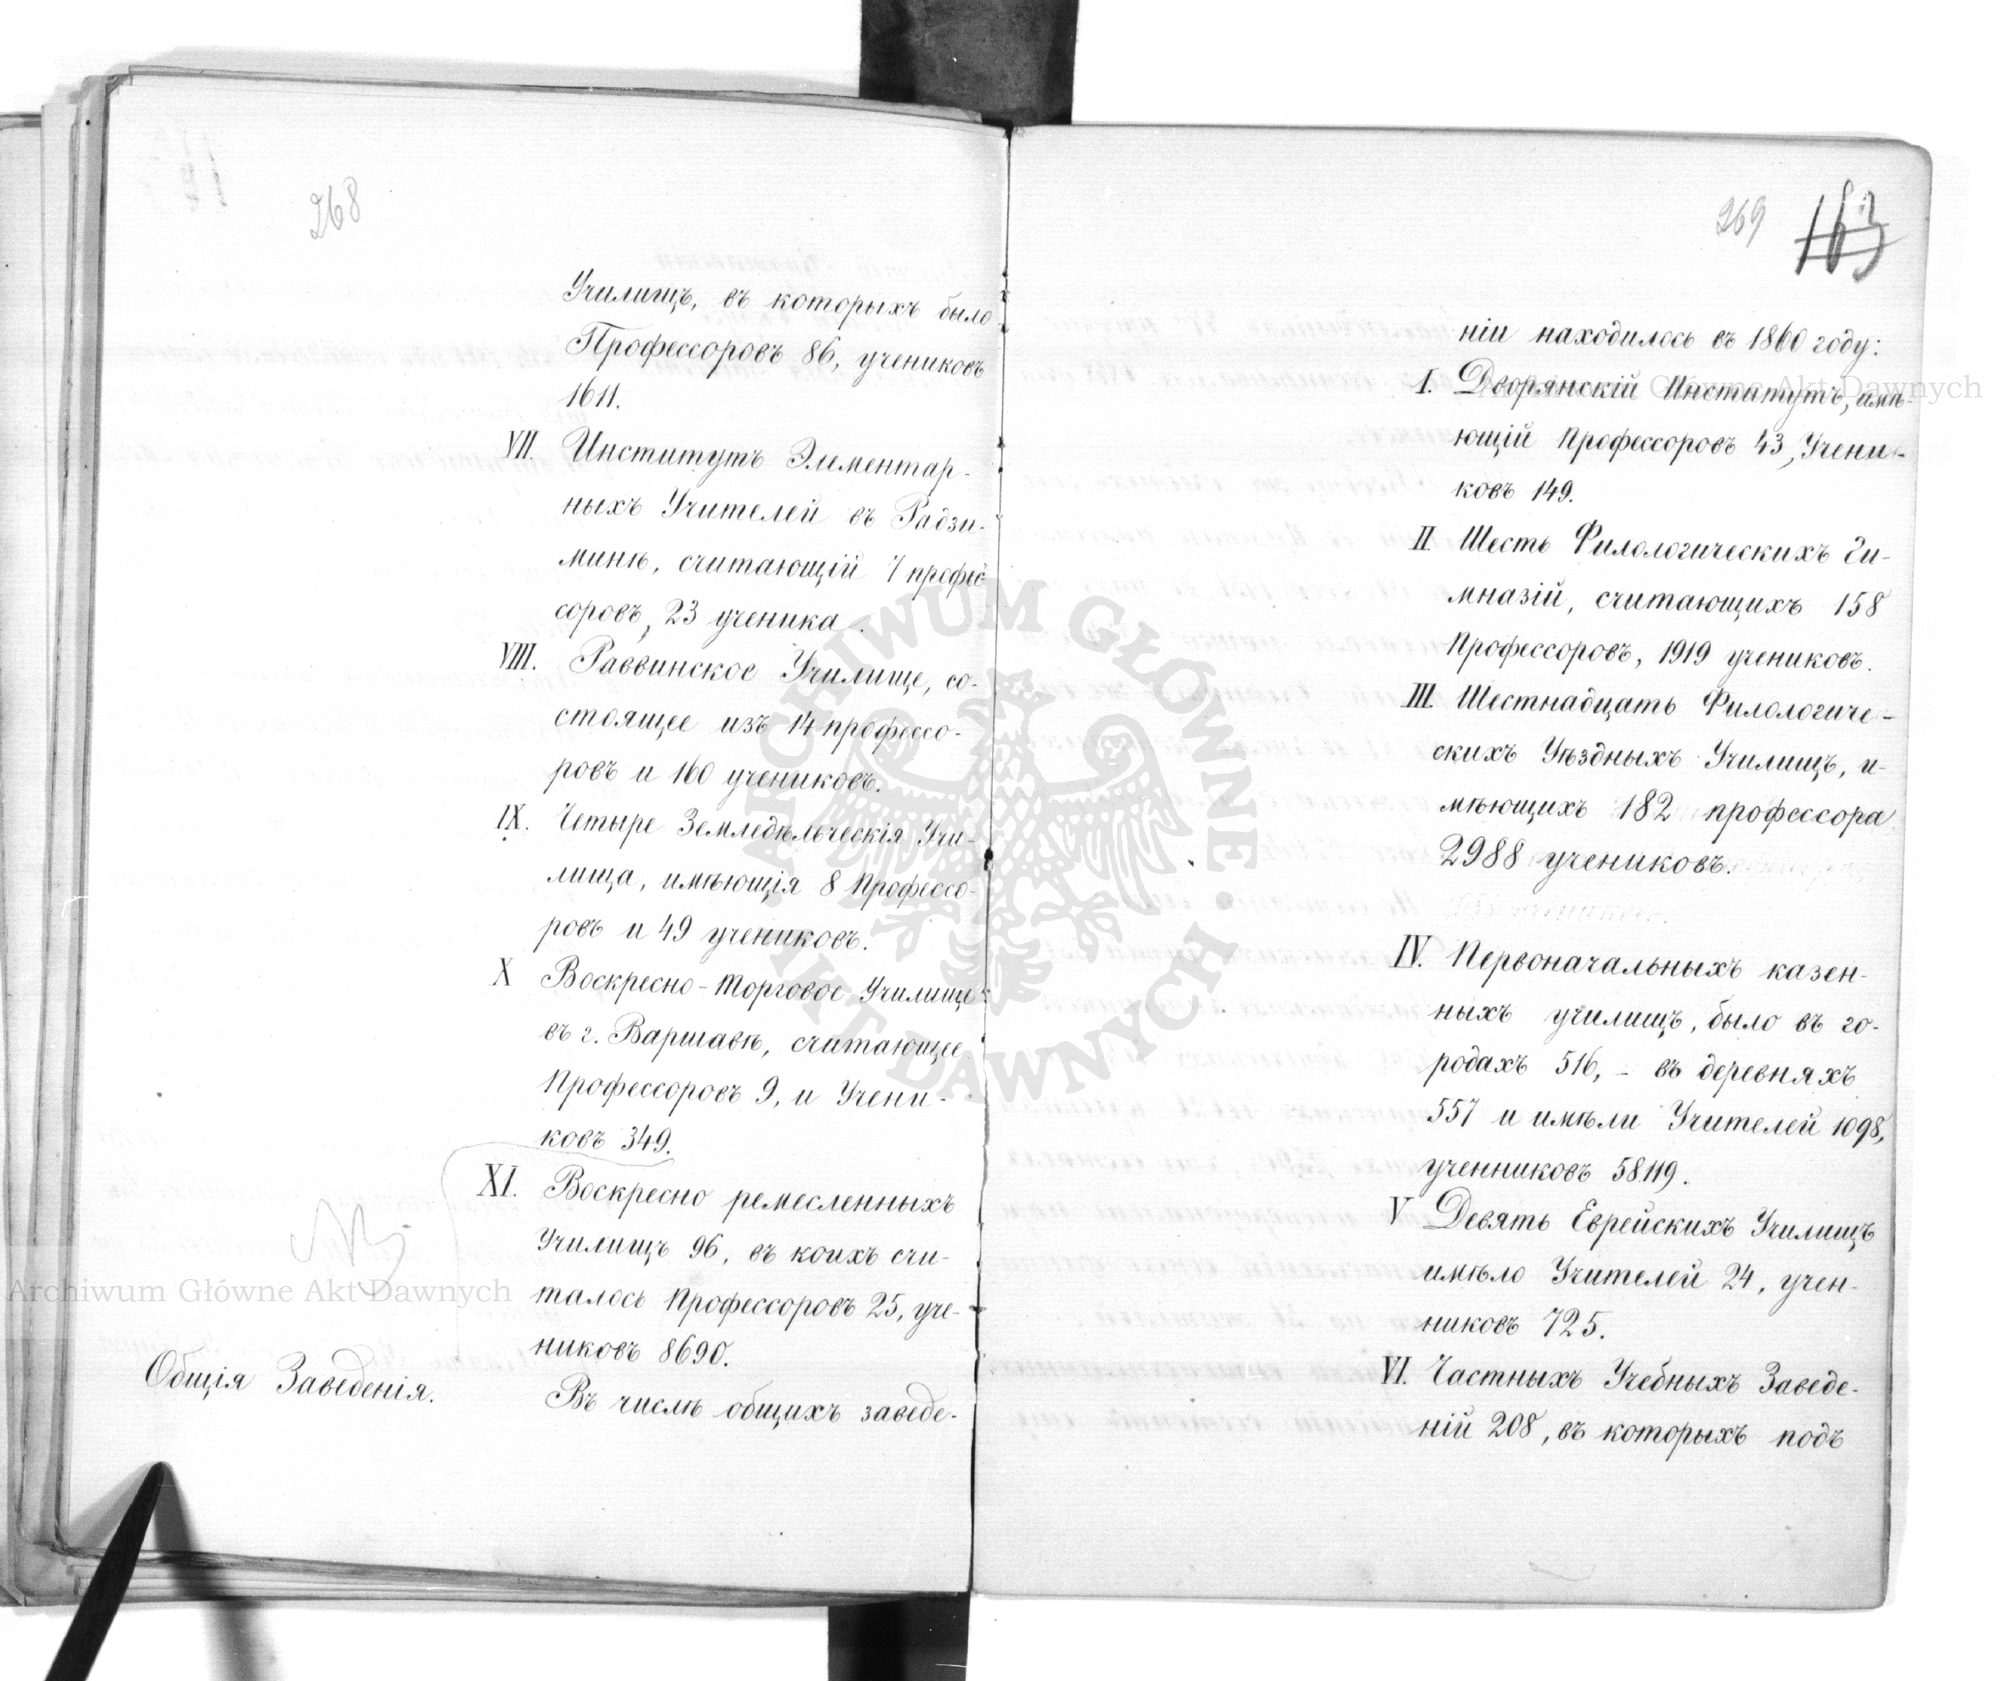 268
Училищъ, въ которыхъ было
Профессоровъ 86, учениковъ
1611.
VII. Институтъ Элементар-
ныхъ Учителей въ Радзи-
минѣ, считающій 7 профес-
соровъ, 23 ученика.
VIII. Раввинское Училище, со-
стоящее изъ 14 профессо-
ровъ и 160 учениковъ.
IX. Четыре Земледѣльческія Учи-
лища, имѣющія 8 Профессо-
ровъ и 49 учениковъ.
X Воскресно-торговое Училище
въ г. Варшавѣ, считающее
Профессоровъ 9, и Учени-
ковъ 349.
XI. Воскресно ремесленныхъ
Училищъ 96, въ коихъ счи-
талось Профессоровъ 25, уче-
никовъ 8690.
Общія Заведенія.
Въ числѣ общихъ заведе-
269 163
ніи находилось въ 1860 году:
I. Дворянскій Институтъ, имѣ-
ющій Профессоровъ 43, Учени-
ковъ 149.
II Шесть Филологическихъ Ги-
мназій, считающихъ 158
Профессоровъ, 1919 учениковъ.
III Шестнадцать Филологиче-
скихъ Уѣздныхъ Училищъ, и-
мѣющихъ 182 профессора
2988 учениковъ.
IV. Первоначальныхъ казен-
ныхъ училищъ, было въ го-
родахъ 516, - въ деревняхъ
557 и имѣли Учителей 1098,
ученниковъ 58119.
V Девять Еврейскихъ Училищъ
имѣло Учителей 24, учен-
никовъ 725.
VI. Частныхъ Учебныхъ Заведе-
ній 208, въ которыхъ подъ
Archiwum Główne Akt Dawnych
Archiwum Główne Akt Dawnych
ARCHIWUM GŁÓWNE • AKT DAWNYCH •